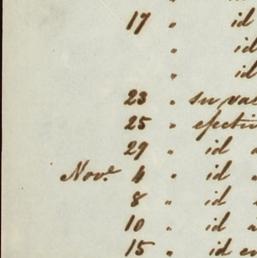 17 " id
" id
" id
23 " su va
25 " efecti
29 " id
Nove. 4 " id
8 " id
10 " id
15 " id en